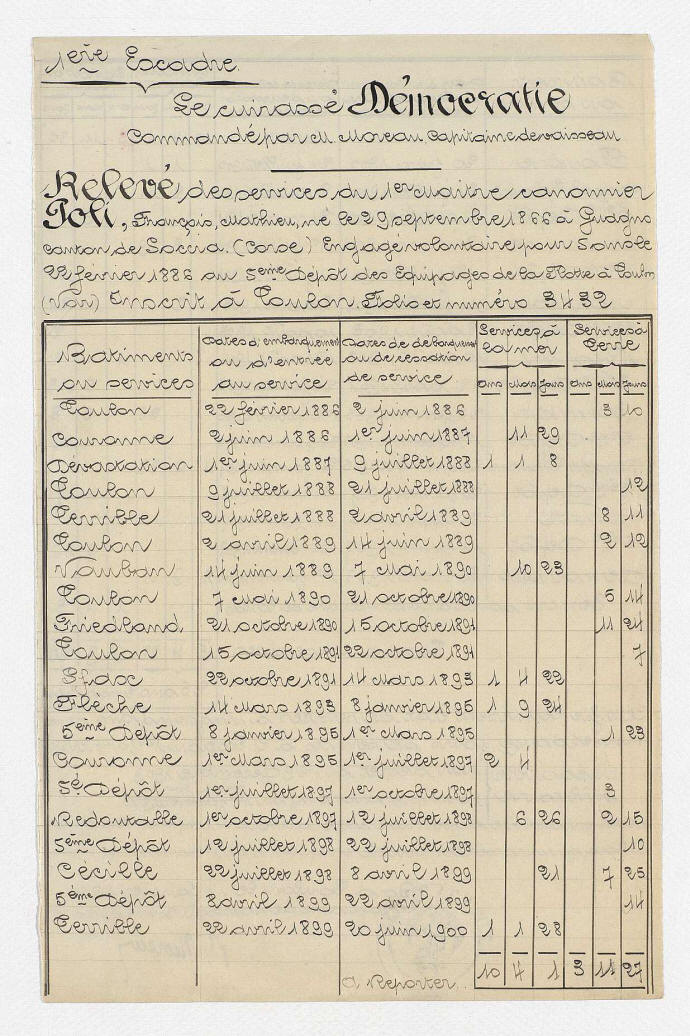 1ère Escadre.
Le cuirassé Démocratie
Commandé par M. Moreau, Capitaine de vaisseau
Relevé des services du 1er Maitre canonnier
Poli, François, Mathieu, né le 29 septembre 1866 à Guagno
canton de Soccia. (Corse) Engagé volontaire pour 5 ans le
22 février 1886 au 5ème Dépôt des Equipages de la Flotte à Toulon
(Var) Inscrit à Toulon. Folio et numéro 3432
Batiments ou services | Dates d'embarquement ou d'entrée au service | Dates de débarquement ou de cessation de service | Services à la mer | Services à Terre
ans | Mois | Jours | ans | Mois | Jours
Toulon | 22 février 1886 | 2 juin 1886 | | | | | 3 | 10
Couronne | 2 juin 1886 | 1er juin 1887 | | 11 | 29 | | |
Dévastation | 1er juin 1887 | 9 juillet 1888 | 1 | 1 | 8 | | |
Toulon | 9 juillet 1888 | 21 juillet 1888 | | | | | | 12
Terrible | 21 juillet 1888 | 2 avril 1889 | | | | | 8 | 11
Toulon | 2 avril 1889 | 14 juin 1889 | | | | | 2 | 12
Vauban | 14 juin 1889 | 7 Mai 1890 | | 10 | 23 | | |
Toulon | 7 Mai 1890 | 21 octobre 1890 | | | | | 5 | 14
Friedland. | 21 octobre 1890 | 15 octobre 1891 | | | | | 11 | 24
Toulon | 15 octobre 1891 | 22 octobre 1891 | | | | | | 7
Sfax | 22 octobre 1891 | 14 Mars 1893 | 1 | 4 | 22 | | |
Flèche | 14 Mars 1893 | 8 janvier 1895 | 1 | 9 | 24 | | |
5ème Dépôt | 8 janvier 1895 | 1er Mars 1895 | | | | | 1 | 23
Couronne | 1er Mars 1895 | 1er juillet 1897 | 2 | 4 | | | |
5è Dépôt | 1er juillet 1897 | 1er octobre 1897 | | | | | 3 |
Redoutable | 1er octobre 1897 | 12 juillet 1898 | | 6 | 26 | | 2 | 15
5ème Dépôt | 12 juillet 1898 | 22 juillet 1898 | | | | | | 10
Cécille | 22 juillet 1898 | 8 avril 1899 | | | 21 | | 7 | 25
5ème Dépôt | 8 avril 1899 | 22 avril 1899 | | | | | | 14
Terrible | 22 avril 1899 | 20 juin 1900 | 1 | 1 | 28 | | |
A Reporter.. | 10 | 4 | 1 | 3 | 11 | 27